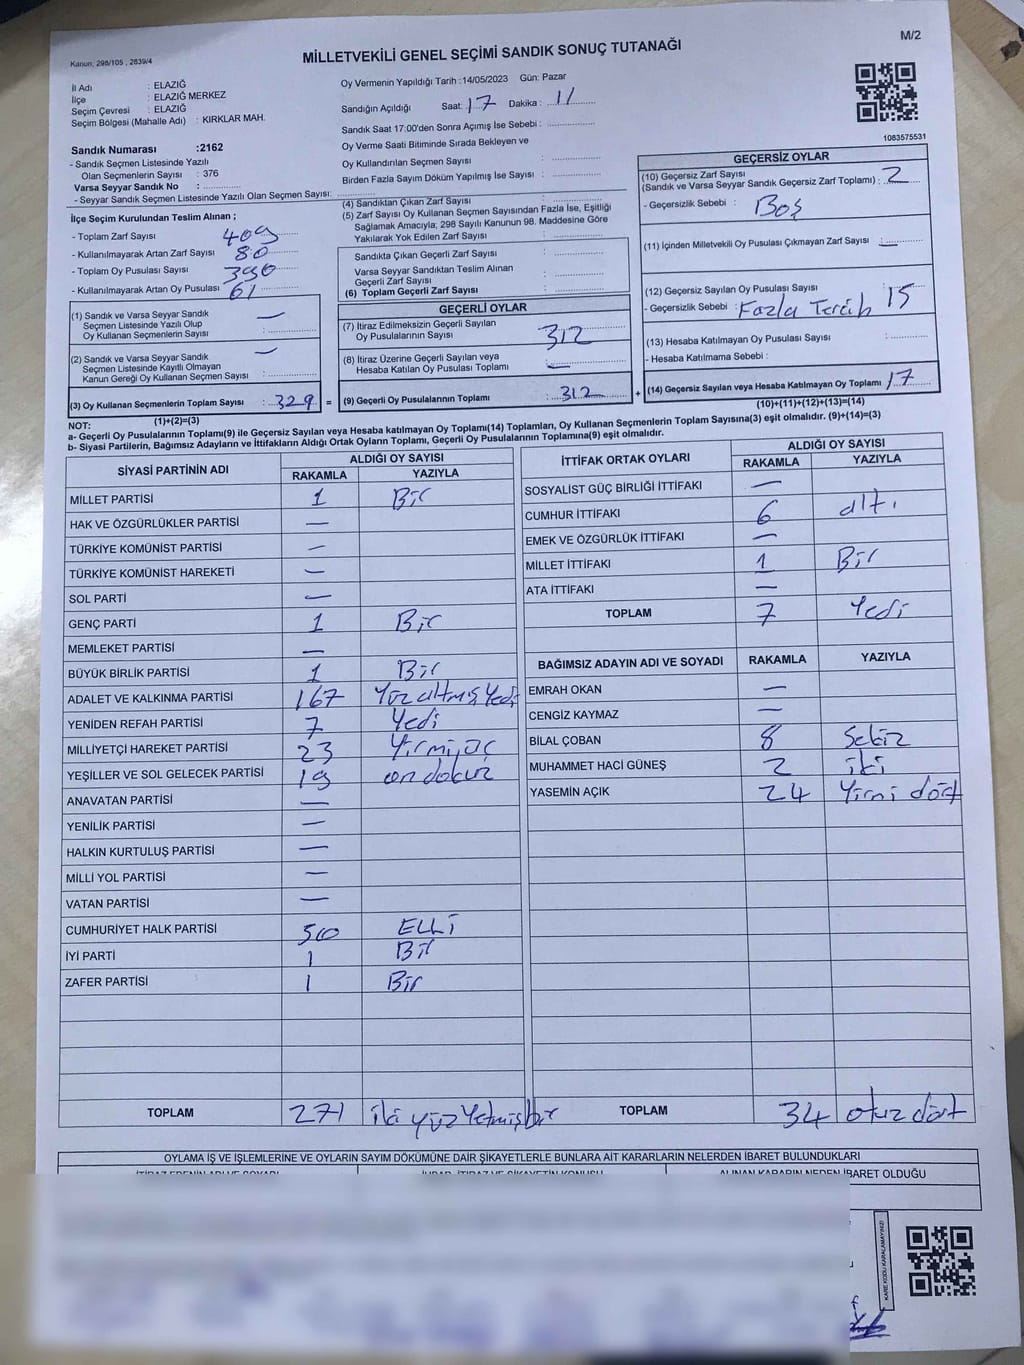 Kanun, 298/105 , 2839/4
MİLLETVEKİLİ GENEL SEÇİMİ SANDIK SONUÇ TUTANAĞI
M/2
İl Adı : ELAZIĞ
İlçe : ELAZIĞ MERKEZ
Seçim Çevresi : ELAZIĞ
Seçim Bölgesi (Mahalle Adı) : KIRKLAR MAH.
Sandık Numarası :2162
- Sandık Seçmen Listesinde Yazılı
Olan Seçmenlerin Sayısı : 376
Varsa Seyyar Sandık No :
- Seyyar Sandık Seçmen Listesinde Yazılı Olan Seçmen Sayısı:
İlçe Seçim Kurulundan Teslim Alınan ;
- Toplam Zarf Sayısı 409
- Kullanılmayarak Artan Zarf Sayısı 80
- Toplam Oy Pusulası Sayısı 390
- Kullanılmayarak Artan Oy Pusulası 61
(1) Sandık ve Varsa Seyyar Sandık
Seçmen Listesinde Yazılı Olup
Oy Kullanan Seçmenlerin Sayısı : —
(2) Sandık ve Varsa Seyyar Sandık
Seçmen Listesinde Kayıtlı Olmayan
Kanun Gereği Oy Kullanan Seçmen Sayısı : —
(3) Oy Kullanan Seçmenlerin Toplam Sayısı : 329 =
(1)+(2)=(3)
Oy Vermenin Yapıldığı Tarih :14/05/2023 Gün: Pazar
Sandığın Açıldığı Saat: 17 Dakika : 11
Sandık Saat 17:00'den Sonra Açımış İse Sebebi :
Oy Verme Saati Bitiminde Sırada Bekleyen ve
Oy Kullandırılan Seçmen Sayısı :
Birden Fazla Sayım Döküm Yapılmış İse Sayısı :
(4) Sandıktan Çıkan Zarf Sayısı :
(5) Zarf Sayısı Oy Kullanan Seçmen Sayısından Fazla İse, Eşitliği
Sağlamak Amacıyla; 298 Sayılı Kanunun 98. Maddesine Göre
Yakılarak Yok Edilen Zarf Sayısı :
Sandıkta Çıkan Geçerli Zarf Sayısı :
Varsa Seyyar Sandıktan Teslim Alınan
Geçerli Zarf Sayısı :
(6) Toplam Geçerli Zarf Sayısı :
GEÇERLİ OYLAR
(7) İtiraz Edilmeksizin Geçerli Sayılan
Oy Pusulalarının Sayısı : 312
(8) İtiraz Üzerine Geçerli Sayılan veya
Hesaba Katılan Oy Pusulası Toplamı : —
(9) Geçerli Oy Pusulalarının Toplamı : 312 +
1083575531
GEÇERSİZ OYLAR
(10) Geçersiz Zarf Sayısı
(Sandık ve Varsa Seyyar Sandık Geçersiz Zarf Toplamı) : 2
- Geçersizlik Sebebi : Boş
(11) İçinden Milletvekili Oy Pusulası Çıkmayan Zarf Sayısı : —
(12) Geçersiz Sayılan Oy Pusulası Sayısı : 15
- Geçersizlik Sebebi : Fazla Tercih
(13) Hesaba Katılmayan Oy Pusulası Sayısı :
- Hesaba Katılmama Sebebi :
(14) Geçersiz Sayılan veya Hesaba Katılmayan Oy Toplamı : 17
(10)+(11)+(12)+(13)=(14)
NOT:
a- Geçerli Oy Pusulalarının Toplamı(9) ile Geçersiz Sayılan veya Hesaba katılmayan Oy Toplamı(14) Toplamları, Oy Kullanan Seçmenlerin Toplam Sayısına(3) eşit olmalıdır. (9)+(14)=(3)
b- Siyasi Partilerin, Bağımsız Adayların ve İttifakların Aldığı Ortak Oyların Toplamı, Geçerli Oy Pusulalarının Toplamına(9) eşit olmalıdır.
SİYASİ PARTİNİN ADI ALDIĞI OY SAYISI
RAKAMLA YAZIYLA
MİLLET PARTİSİ 1 Bir
HAK VE ÖZGÜRLÜKLER PARTİSİ —
TÜRKİYE KOMÜNİST PARTİSİ —
TÜRKİYE KOMÜNİST HAREKETİ —
SOL PARTİ —
GENÇ PARTİ 1 Bir
MEMLEKET PARTİSİ —
BÜYÜK BİRLİK PARTİSİ 1 Bir
ADALET VE KALKINMA PARTİSİ 167 Yüz altmış Yedi
YENİDEN REFAH PARTİSİ 7 Yedi
MİLLİYETÇİ HAREKET PARTİSİ 23 Yirmi üç
YEŞİLLER VE SOL GELECEK PARTİSİ 19 on dokuz
ANAVATAN PARTİSİ —
YENİLİK PARTİSİ —
HALKIN KURTULUŞ PARTİSİ —
MİLLİ YOL PARTİSİ —
VATAN PARTİSİ —
CUMHURİYET HALK PARTİSİ 50 ELLİ
İYİ PARTİ 1 Bir
ZAFER PARTİSİ 1 Bir
TOPLAM 271 iki yüz Yetmiş bir
İTTİFAK ORTAK OYLARI ALDIĞI OY SAYISI
RAKAMLA YAZIYLA
SOSYALİST GÜÇ BİRLİĞİ İTTİFAKI —
CUMHUR İTTİFAKI 6 altı
EMEK VE ÖZGÜRLÜK İTTİFAKI —
MİLLET İTTİFAKI 1 Bir
ATA İTTİFAKI —
TOPLAM 7 Yedi
BAĞIMSIZ ADAYIN ADI VE SOYADI RAKAMLA YAZIYLA
EMRAH OKAN —
CENGİZ KAYMAZ —
BİLAL ÇOBAN 8 Sekiz
MUHAMMET HACİ GÜNEŞ 2 iki
YASEMİN AÇIK 24 Yirmi dört
TOPLAM 34 otuz dört
OYLAMA İŞ VE İŞLEMLERİNE VE OYLARIN SAYIM DÖKÜMÜNE DAİR ŞİKAYETLERLE BUNLARA AİT KARARLARIN NELERDEN İBARET BULUNDUKLARI
ALINAN KARARIN NEDEN İBARET OLDUĞU
KARE KODU KARALAMAYINIZ!